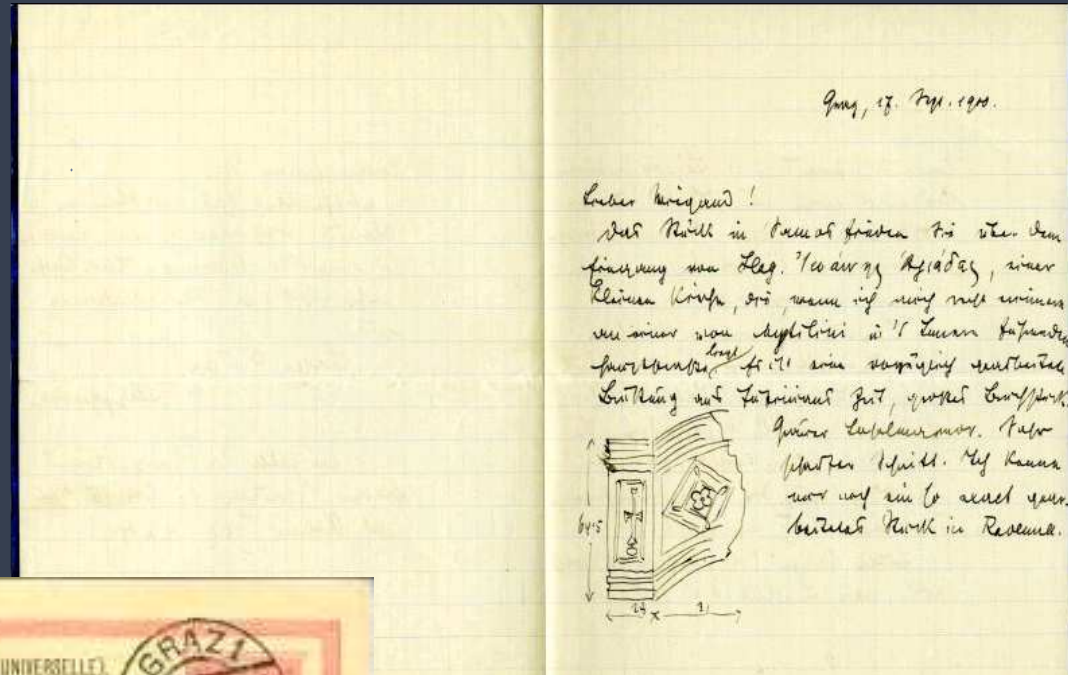 Graz, 17. Sept. 1900.
Lieber Wiegand!
Das Stück in Samos finden Sie über dem
Eingang von Hag. Ἰωάννης, einer
kleinen Kirche, die, wenn ich mich recht erinnere
an einer von Mytilini in's Innere führenden
liegt. Es ist eine vorzüglich gearbeitete
Brüstung aus Justinians Zeit, großes Bruchstück.
Grauer. Sehr
scharfer Schnitt. Ich kenne
nur noch ein so exact gear-
beitetes Stück in Ravenna.
64·5
24 x
UNIVERSELLE).
GRAZ 1